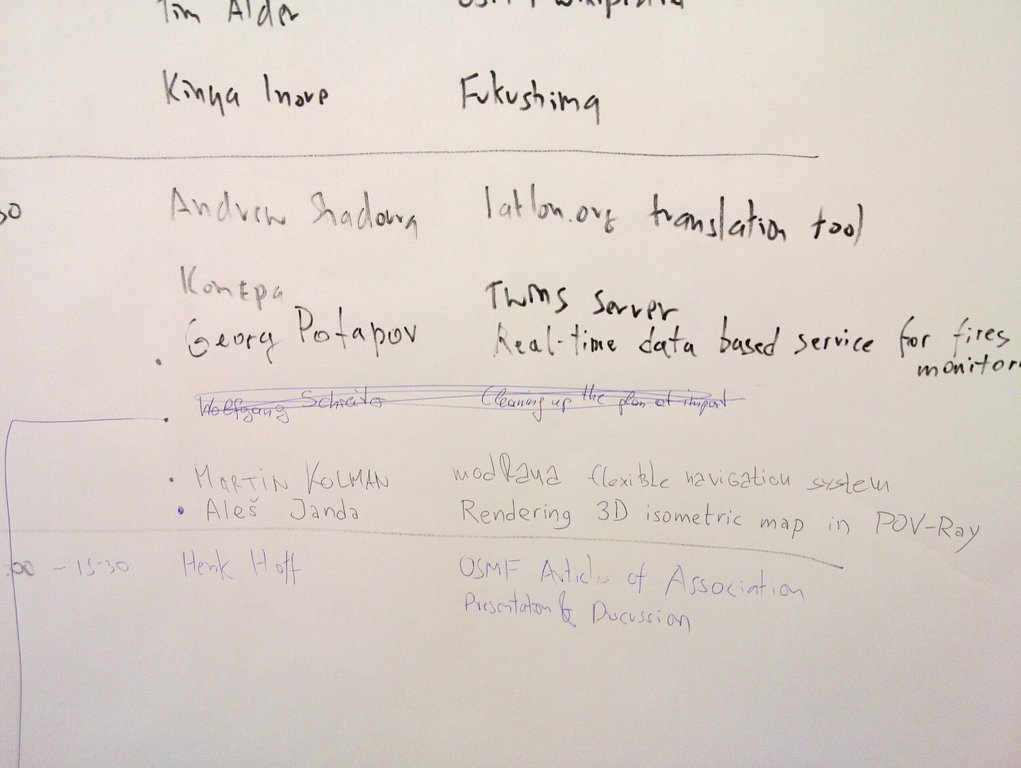 Tim Alder
Kinya Inoue Fukushima
30 Andrew Shadoura latlon.org translation tool
Komzpa TWMS server
Georg Potapov Real-time data based service for fires
monitor
Wolfgang Cleaning up the plan.at import
MARTIN KOLMAN modRana flexible navigation system
Aleš Janda Rendering 3D isometric map in POV-Ray
:00 - 15:30 Henk Hoff OSMF Articles of Association
Presentation & Discussion